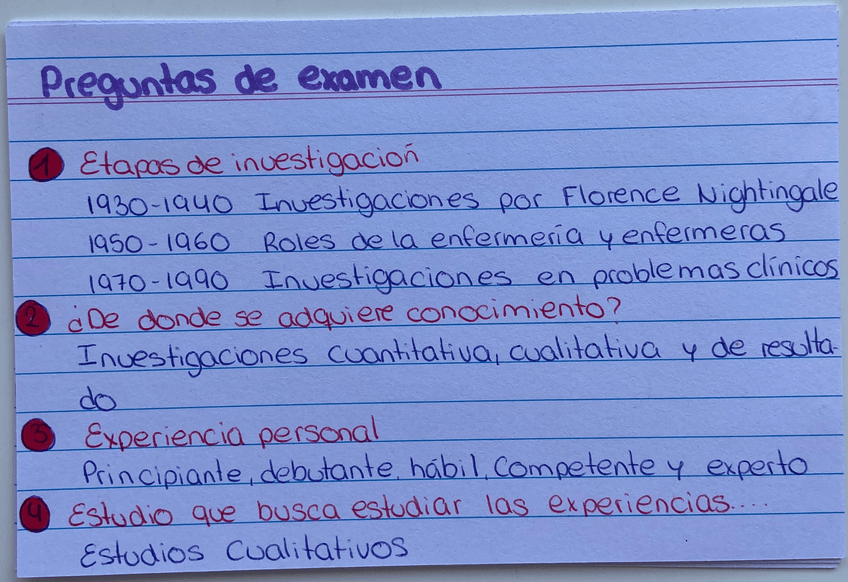 Preguntas de examen
1 Etapas de investigación
1930-1940 Investigaciones por Florence Nightingale
1950-1960 Roles de la enfermería y enfermeras
1970-1990 Investigaciones en problemas clínicos
2 ¿De donde se adquiere conocimiento?
Investigaciones cuantitativa, cualitativa y de resulta-
do
3 Experiencia personal
Principiante, debutante, hábil, competente y experto
4 Estudio que busca estudiar las experiencias....
Estudios Cualitativos